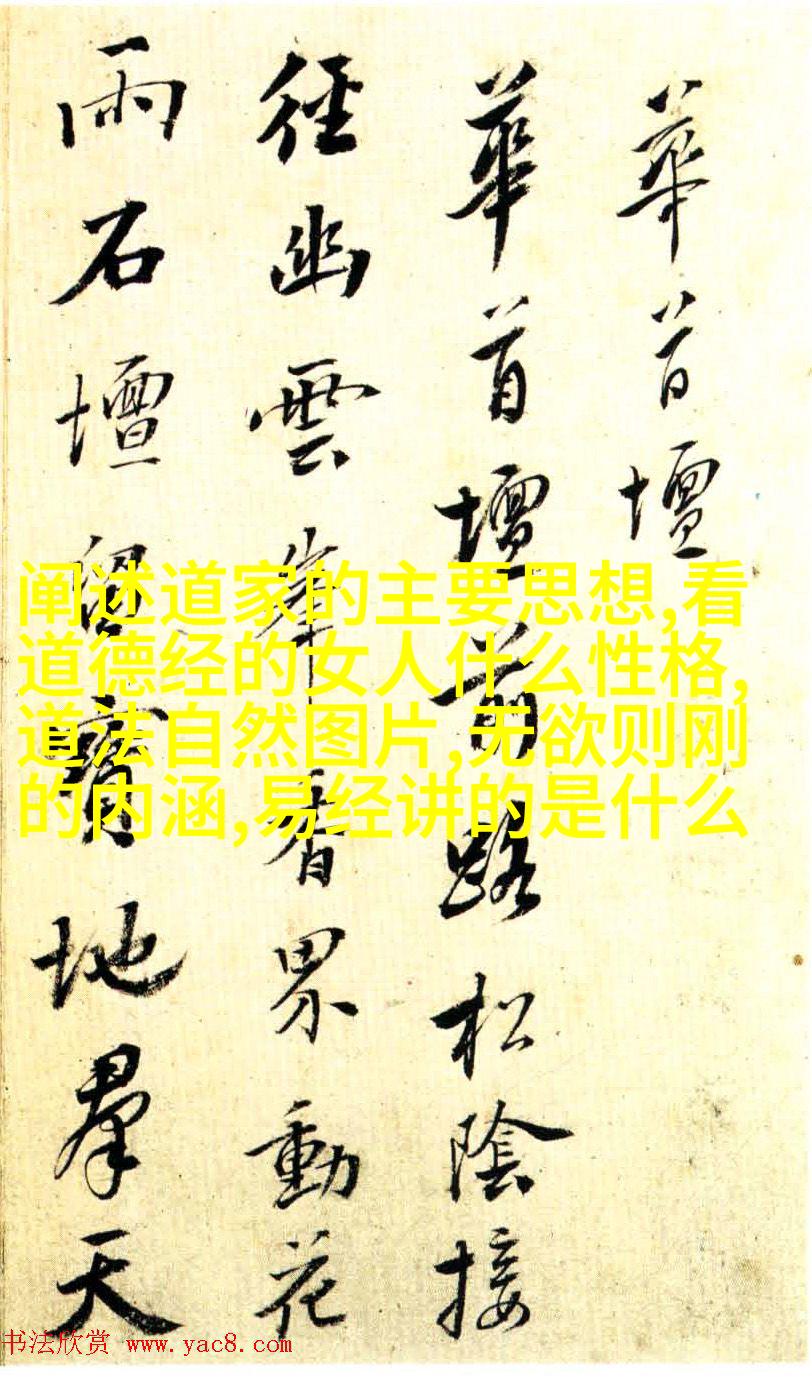 華首壇
華首壇前路松陰接
徑幽雲峯香界動花
雨石壇留寶地羣天
阐述道家的主要思想,看
道德经的女人什么性格,
道法自然图片,无欲则刚
的内涵,易经讲的是什么
书法欣赏 www.yac8.com